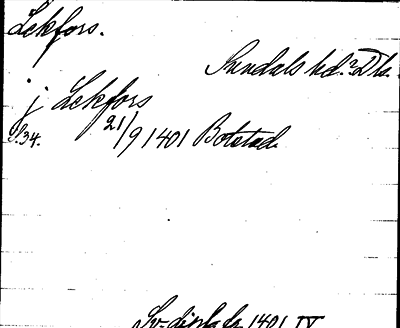 Lekfors.
Sundals hd.? Dls.
j Lekfors
S.34. 21/9 1401 Botstad
Sv-dipl 1401 IV